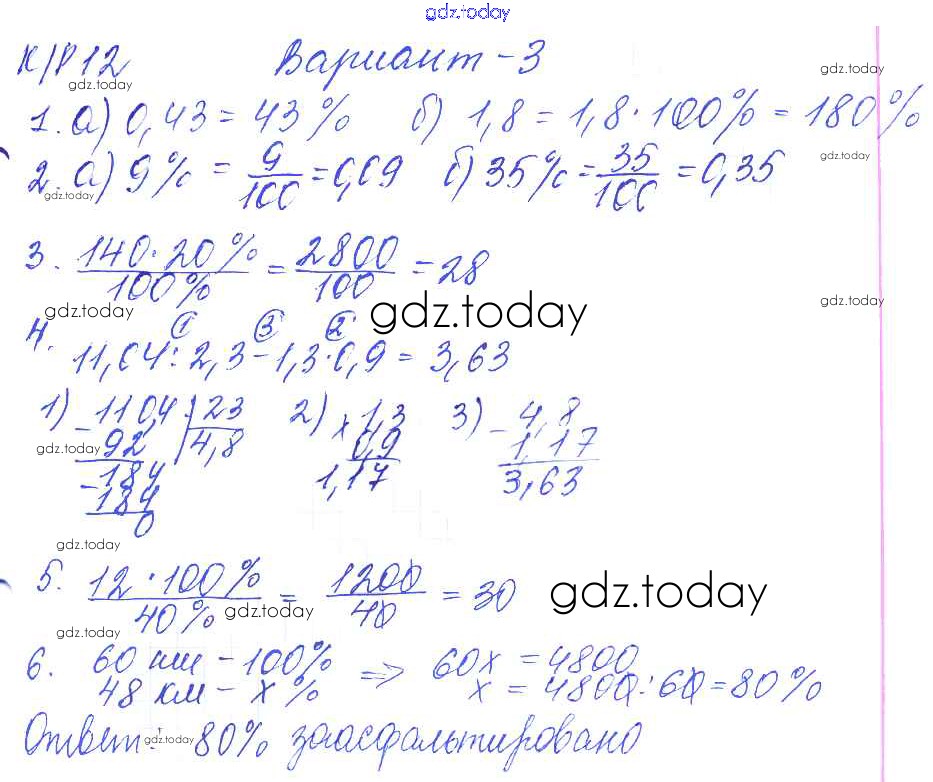 gdz.today
К/Р 12 Вариант - 3
gdz.today gdz.today
1. а) 0,43 = 43 % б) 1,8 = 1,8 · 100% = 180 %
2. а) 9 % = 9/100 = 0,09 б) 35 % = 35/100 = 0,35
gdz.today gdz.today
3. 140 · 20 % / 100 % = 2800 / 100 = 28
gdz.today gdz.today gdz.today
1 3 2
4. 11,04 : 2,3 - 1,3 · 0,9 = 3,63
1) - 110,4 | 23 2) × 1,3 3) - 4,8
92 | 4,8 0,9 1,17
gdz.today
- 184 1,17 3,63
184
0
gdz.today
5. 12 · 100 % / 40 % = 1200 / 40 = 30
gdz.today gdz.today
gdz.today
6. 60 км - 100% => 60x = 4800
48 км - x % x = 4800 : 60 = 80 %
Ответ: 80% заасфальтировано
gdz.today